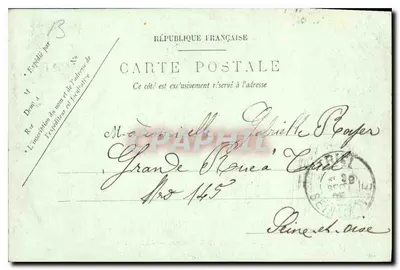 B
RÉPUBLIQUE FRANÇAISE
CARTE POSTALE
Ce côté est exclusivement réservé à l'adresse
Expédié par
M
Deme à
Rue
L'inscription du nom et de l'adresse de
l'expéditeur est facultative
Mademoiselle Gabrielle Royer
Grande Rue à Triel
No 145
Seine et oise
TRIEL